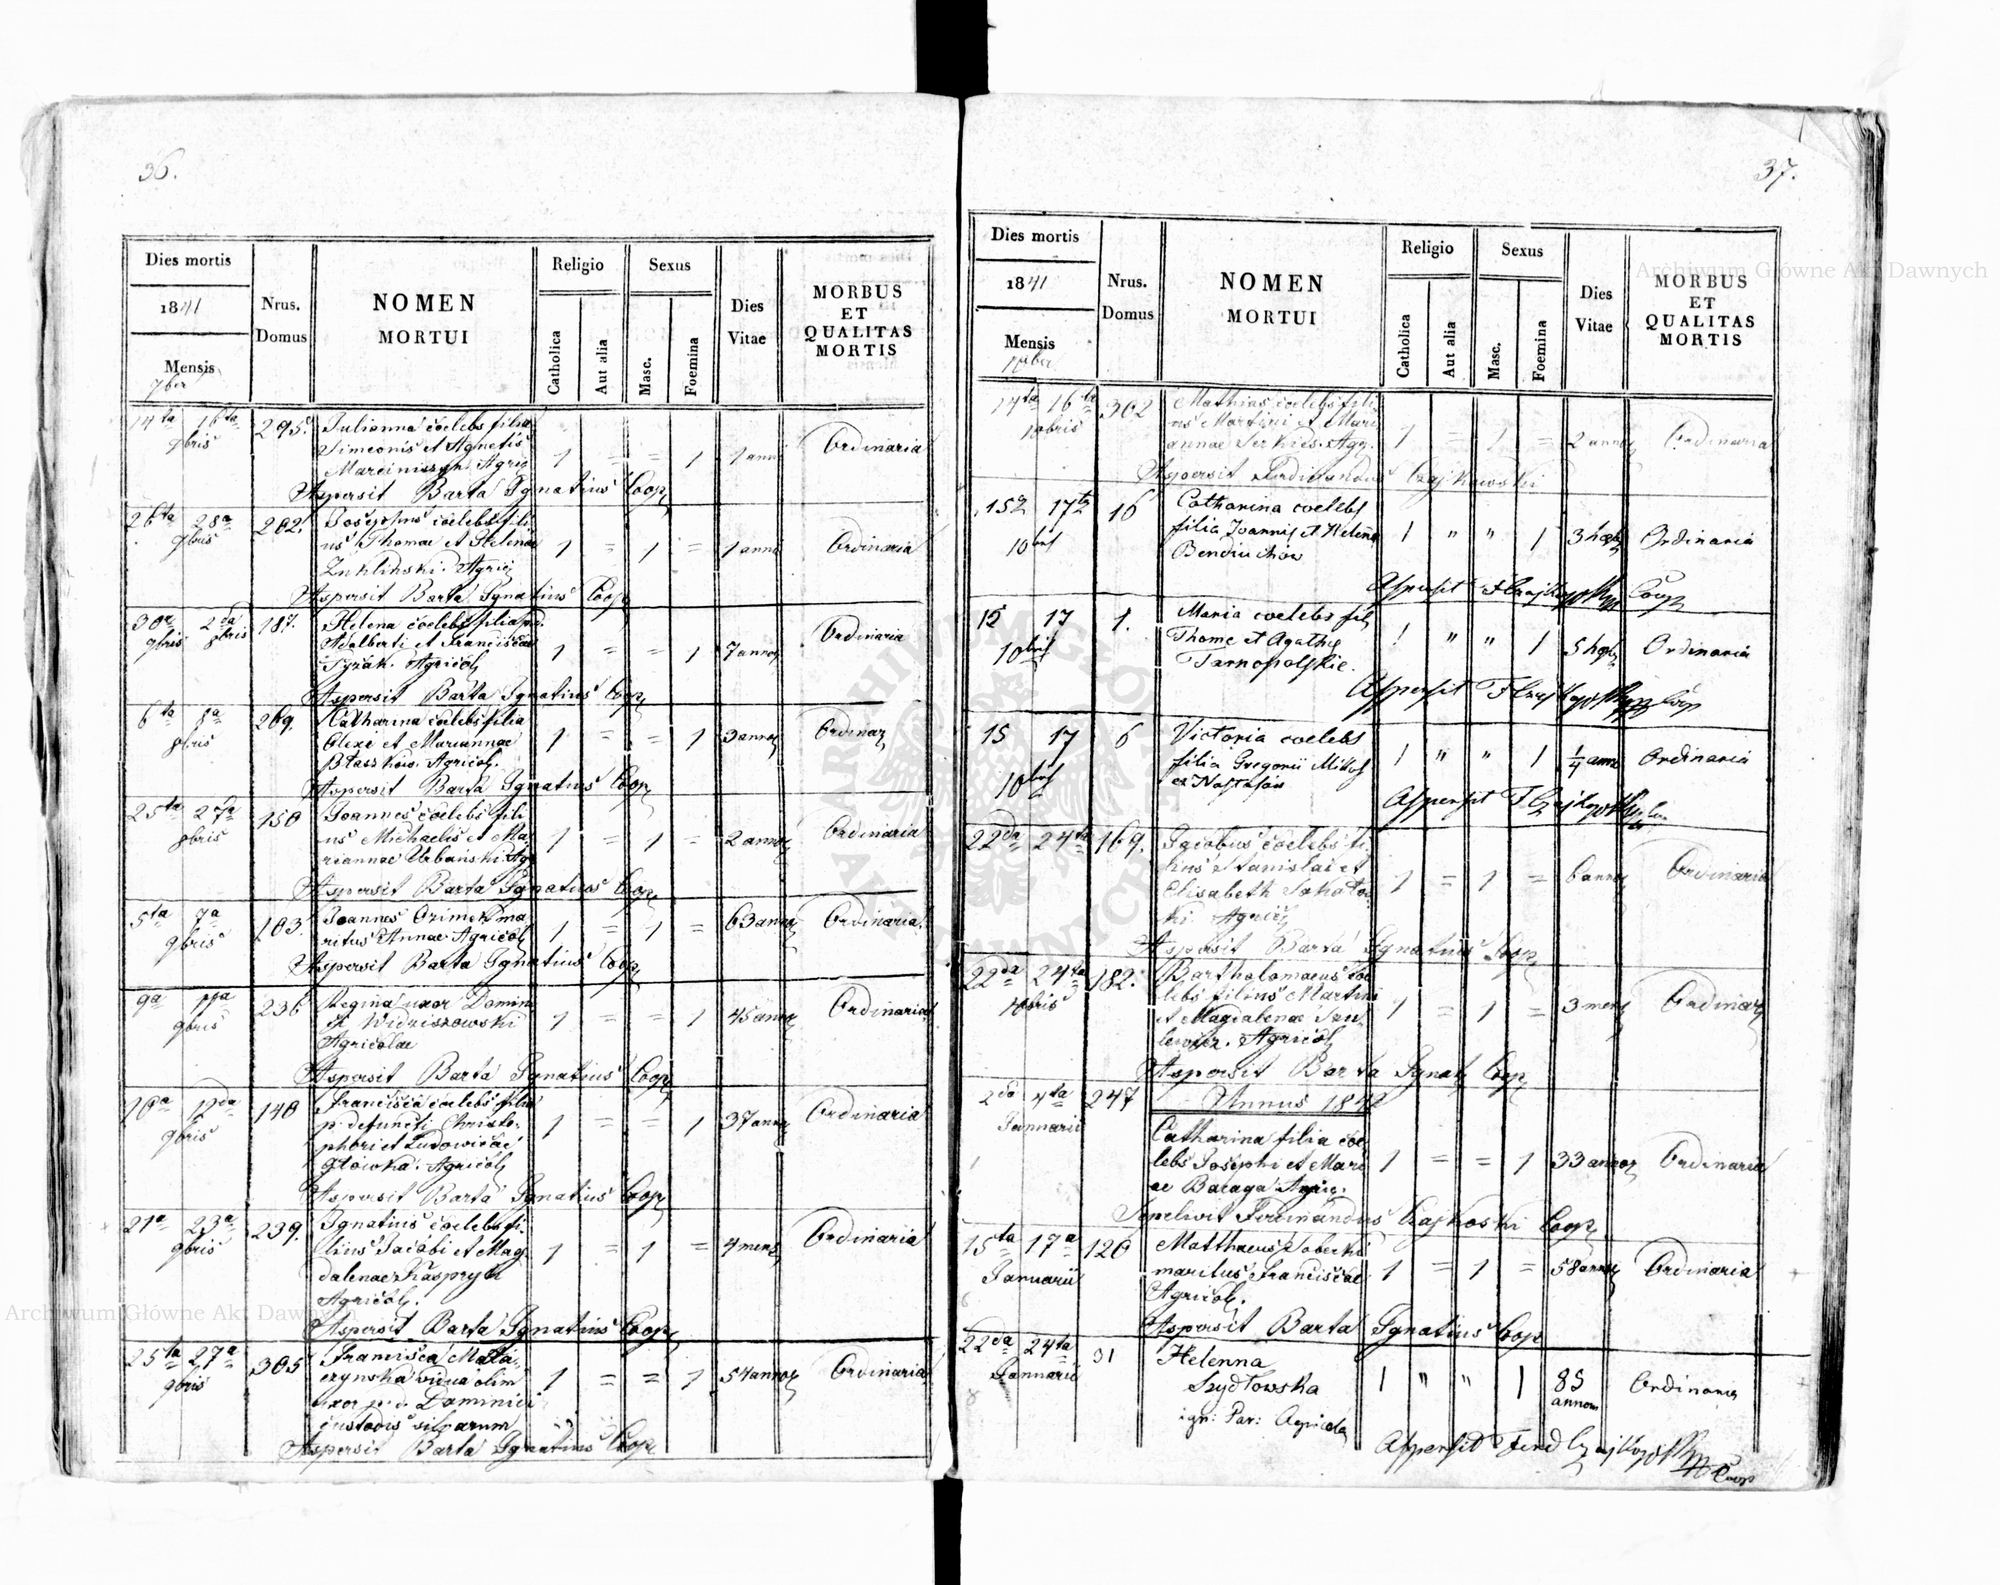 36.
Dies mortis
1841
Mensis
7ber
Nrus.
Domus
NOMEN
MORTUI
Religio
Catholica
Aut alia
Sexus
Masc.
Foemina
Dies
Vitae
MORBUS
ET
QUALITAS
MORTIS
14ta 16ta 295. Julianna coelebs filia
9bris Simeonis et Agnetis 1 = = 1 1 anni Ordinaria
Agric
Aspersit Barta Ignatius Coop
26ta 28a 202. Josephus coelebs fili
9bris us Thomae et Helenae 1 = 1 = 1 anni Ordinaria
Agric
Aspersit Barta Ignatius Coop
187. Helena coelebs filia
Adalberti et Franciscae 1 = = 1 7 annor Ordinaria
Agricol
Aspersit Barta Ignatius Coop
6ta 8a 269. Catharina coelebs filia
8bris Alexi et Mariannae 1 = = 1 3 annor Ordinar
Agricol.
Aspersit Barta Ignatius Coop
25ta 27a 150 Joannes coelebs fili
8bris us Michaelis et Ma 1 = 1 = 2 annor Ordinaria
riannae Urbanski Agr
Aspersit Barta Ignatius Coop
5ta 7a 103. Joannes Ozimek ma
9bris ritus Annae Agricol 1 = 1 = 63 annor Ordinaria.
Aspersit Barta Ignatius Coop
9a 11a 236 Regina uxor Domini
9bris ci 1 = = 1 45 annor Ordinaria
Agricolae
Aspersit Barta Ignatius Coop
10a 12da 140 Francisca coelebs filia
9bris p. defuncti Christo- 1 = = 1 37 annor Ordinaria
phori et Ludowicae
Głowka. Agricol
Aspersit Barta Ignatius Coop
21a 23a 239. Ignatius coelebs fi-
9bris lius Jacobi et Mag 1 = 1 = 4 mens Ordinaria
dalenae Kaspryk
Agricol.
Aspersit Barta Ignatius Coop
25ta 27a 305 Francisca Mata-
9bris czynska vidua olim 1 = = 1 54 annor Ordinaria
uxor p. d. Dominici
custodis silvarum
Aspersit Barta Ignatius Coop
37.
Dies mortis
1841
Mensis
10ber
Nrus.
Domus
NOMEN
MORTUI
Religio
Catholica
Aut alia
Sexus
Masc.
Foemina
Dies
Vitae
MORBUS
ET
QUALITAS
MORTIS
14ta 16ta 302 Mathias coelebs fili-
10bris us Martini et Mari
annae Agr. 1 = 1 = 2 annor Ordinaria
Aspersit Ferdinandus Czajkowski
15a 17ta 16 Catharina coelebs
10bris filia Joannis et Helena 1 " " 1 3 Ordinaria
Aspersit F Coop
15 17 1. Maria coelebs fil
10bris Thome et Agathe 1 " " 1 5 Ordinaria
Tarnopolskie.
Aspersit F Coop
15 17 6 Victoria coelebs
10bris filia Gregorii 1 " " 1 1/4 anni Ordinaria
Aspersit F
22da 24ta 169. Jacobus coelebs fi-
lius Stanislai et 1 = 1 = 6 annor Ordinaria
Elisabeth
ki Agricol
Aspersit Barta Ignatius Coop
22da 24ta 182. Bartholomaeus coe
10bris lebs filius Martini 1 = 1 = 3 mens Ordinar
et Magdalenae
Agricol
Aspersit Barta Ignat Coop
2da 4ta 247 Annus 1842
Januarii
Catharina filia coe
lebs Josephi et Mari 1 = = 1 33 annor Ordinaria
ae Baraga Agric.
Sepelivit Ferdinandus Czajkoski Coop.
15ta 17a 120 Matthaeus Soberki
Januarii maritus Franciscae 1 = 1 = 58 annor Ordinaria
Agricol.
Aspersit Barta Ignatius Coop
22da 24ta 31 Helenna
Januarii Szydłowska 1 " " 1 85 Ordinaria
annor
ign: Par: Agricola
Aspersit Ferd Coop
Archiwum Główne Akt Dawnych
Archiwum Główne Akt Dawnych